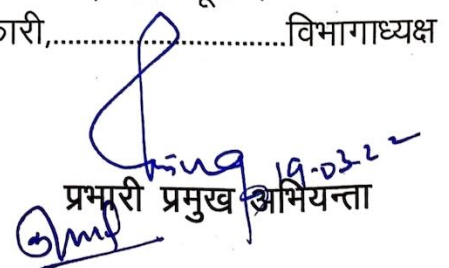 गरी,..............................विभागाध्यक्ष
19-03-22
प्रभारी प्रमुख अभियन्ता